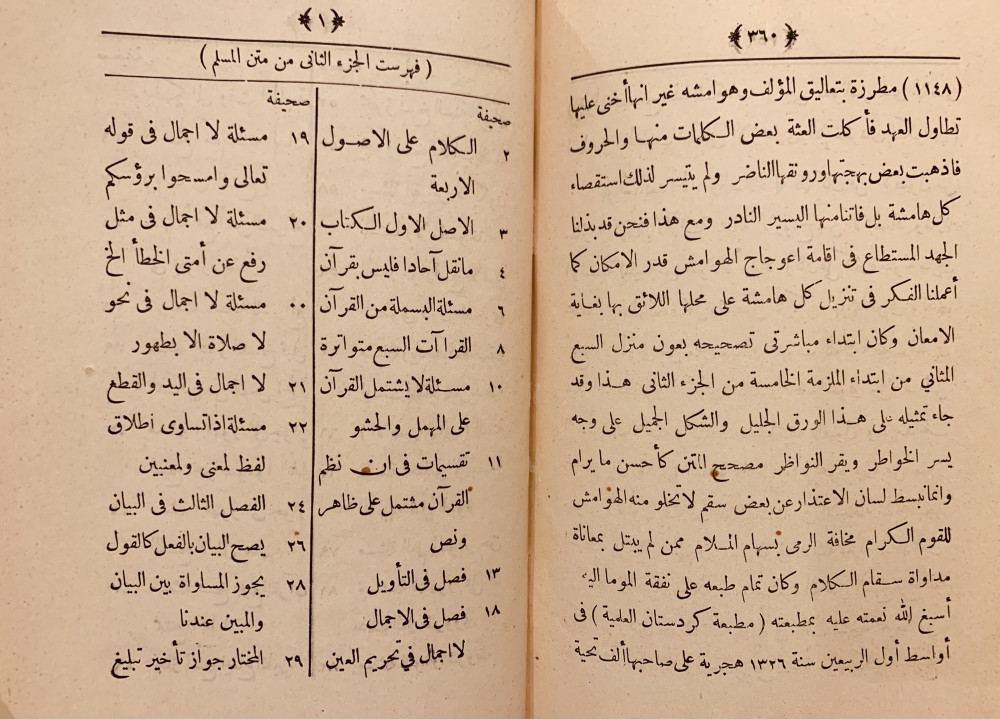 ﴿ ٣٦٠ ﴾
( ١١٤٨ ) مطرزة بتعاليق المؤلف وهوامشه غير انها أخنى عليها
تطاول العهد فأكلت العثة بعض الكلمات منها والحروف
فاذهبت بعض بهجتها ورونقها الناضر ولم يتيسر لذلك استقصاء
كل هامشة بل فاتنا منها اليسير النادر ومع هذا فنحن قد بذلنا
الجهد المستطاع فى اقامة اعوجاج الهوامش قدر الامكان كما
أعملنا الفكر فى تنزيل كل هامشة على محلها اللائق بها بغاية
الامعان وكان ابتداء مباشرتى تصحيحه بعون منزل السبع
المثاني من ابتداء الملزمة الخامسة من الجزء الثانى هذا وقد
جاء تمثيله على هذا الورق الجليل والشكل الجميل على وجه
يسر الخواطر ويقر النواظر مصحح المتن كأحسن ما يرام
وانما نبسط لسان الاعتذار عن بعض سقم لا تخلو منه الهوامش
للقوم الكرام مخافة الرمى بسهام الملام ممن لم يبتل بمعاناة
مداواة سقام الكلام وكان تمام طبعه على نفقة الموما اليه
أسبغ الله نعمته عليه بمطبعته ( مطبعة كردستان العلمية ) فى
أواسط أول الربيعين سنة ١٣٢٦ هجرية على صاحبها ألف تحية
﴿ ١ ﴾
( فهرست الجزء الثانى من متن المسلم )
صحيفة
٢ الكلام على الاصول
الاربعة
٣ الاصل الاول الكتاب
٤ مانقل آحادا فليس بقرآن
٦ مسئلة البسملة من القرآن
٨ القراآت السبع متواترة
١٠ مسئلة لا يشتمل القرآن
على المهمل والحشو
١١ تقسيمات فى ان نظم
القرآن مشتمل على ظاهر
ونص
١٣ فصل فى التأويل
١٨ فصل فى الاجمال
لا اجمال في تحريم العين
صحيفة
١٩ مسئلة لا اجمال فى قوله
تعالى وامسحوا برؤسكم
٢٠ مسئلة لا اجمال فى مثل
رفع عن أمتى الخطأ الخ
٠٠ مسئلة لا اجمال فى نحو
لا صلاة الا بطهور
٢١ لا اجمال فى اليد والقطع
٢٢ مسئلة اذا تساوى اطلاق
لفظ لمعنى ولمعنيين
٢٤ الفصل الثالث فى البيان
٢٦ يصح البيان بالفعل كالقول
٢٨ يجوز المساواة بين البيان
والمبين عندنا
٢٩ المختار جواز تأخير تبليغ